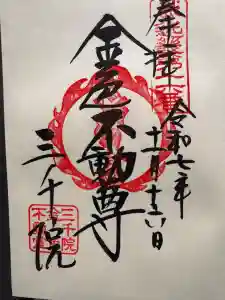 奉拝
令和七年
十一月十六日
金色不動尊
三千院
三千院